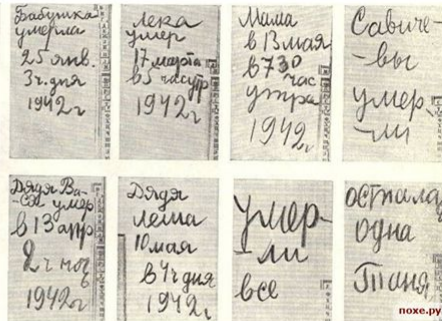 Бабушка
умерла
25 янв.
3ч. дня
1942г
Лека
умер
17 марта
в 5 час утр
1942г
Мама
в 13 мая
в 7 30
час
утра
1942г
Савиче-
-вы
умер-
-ли
Дядя Ва-
ся умер
в 13 апр
2 ч ноч
1942г
Дядя
Леша
10 мая
в 4ч дня
1942г
Умер-
-ли
все
Осталась
одна
Таня
похе.ру